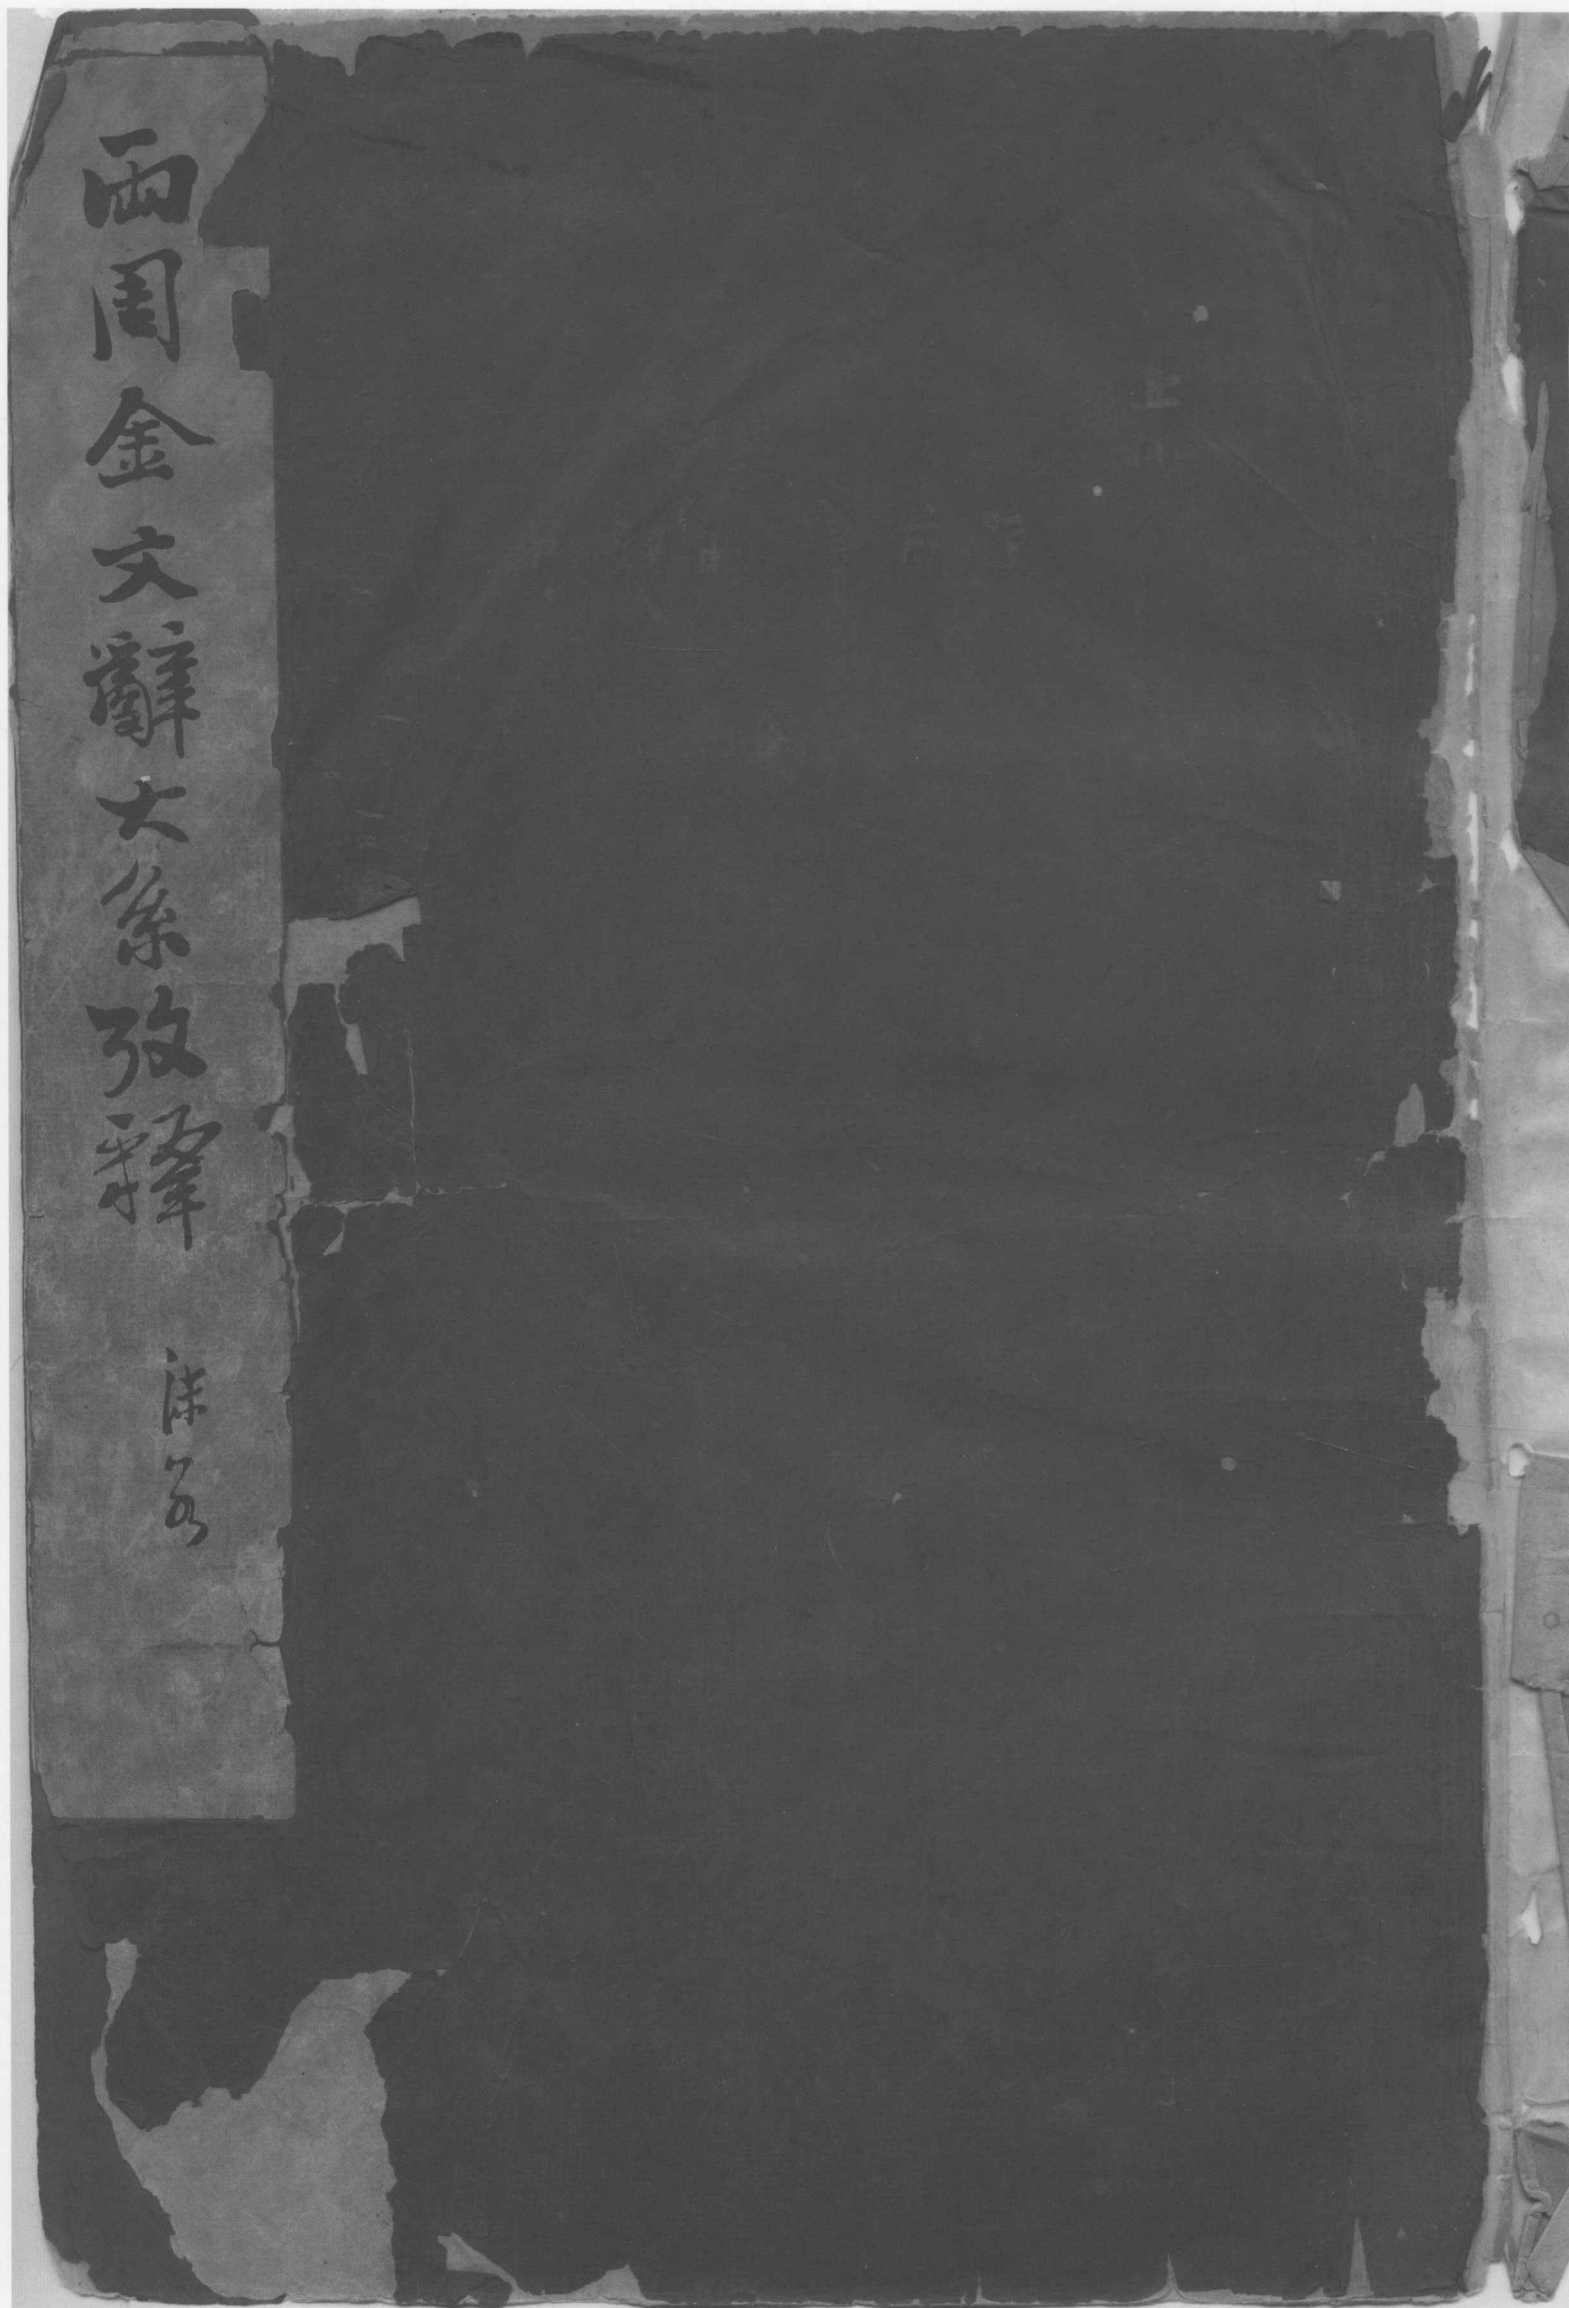 兩周金文辭大系攷釋
沫若